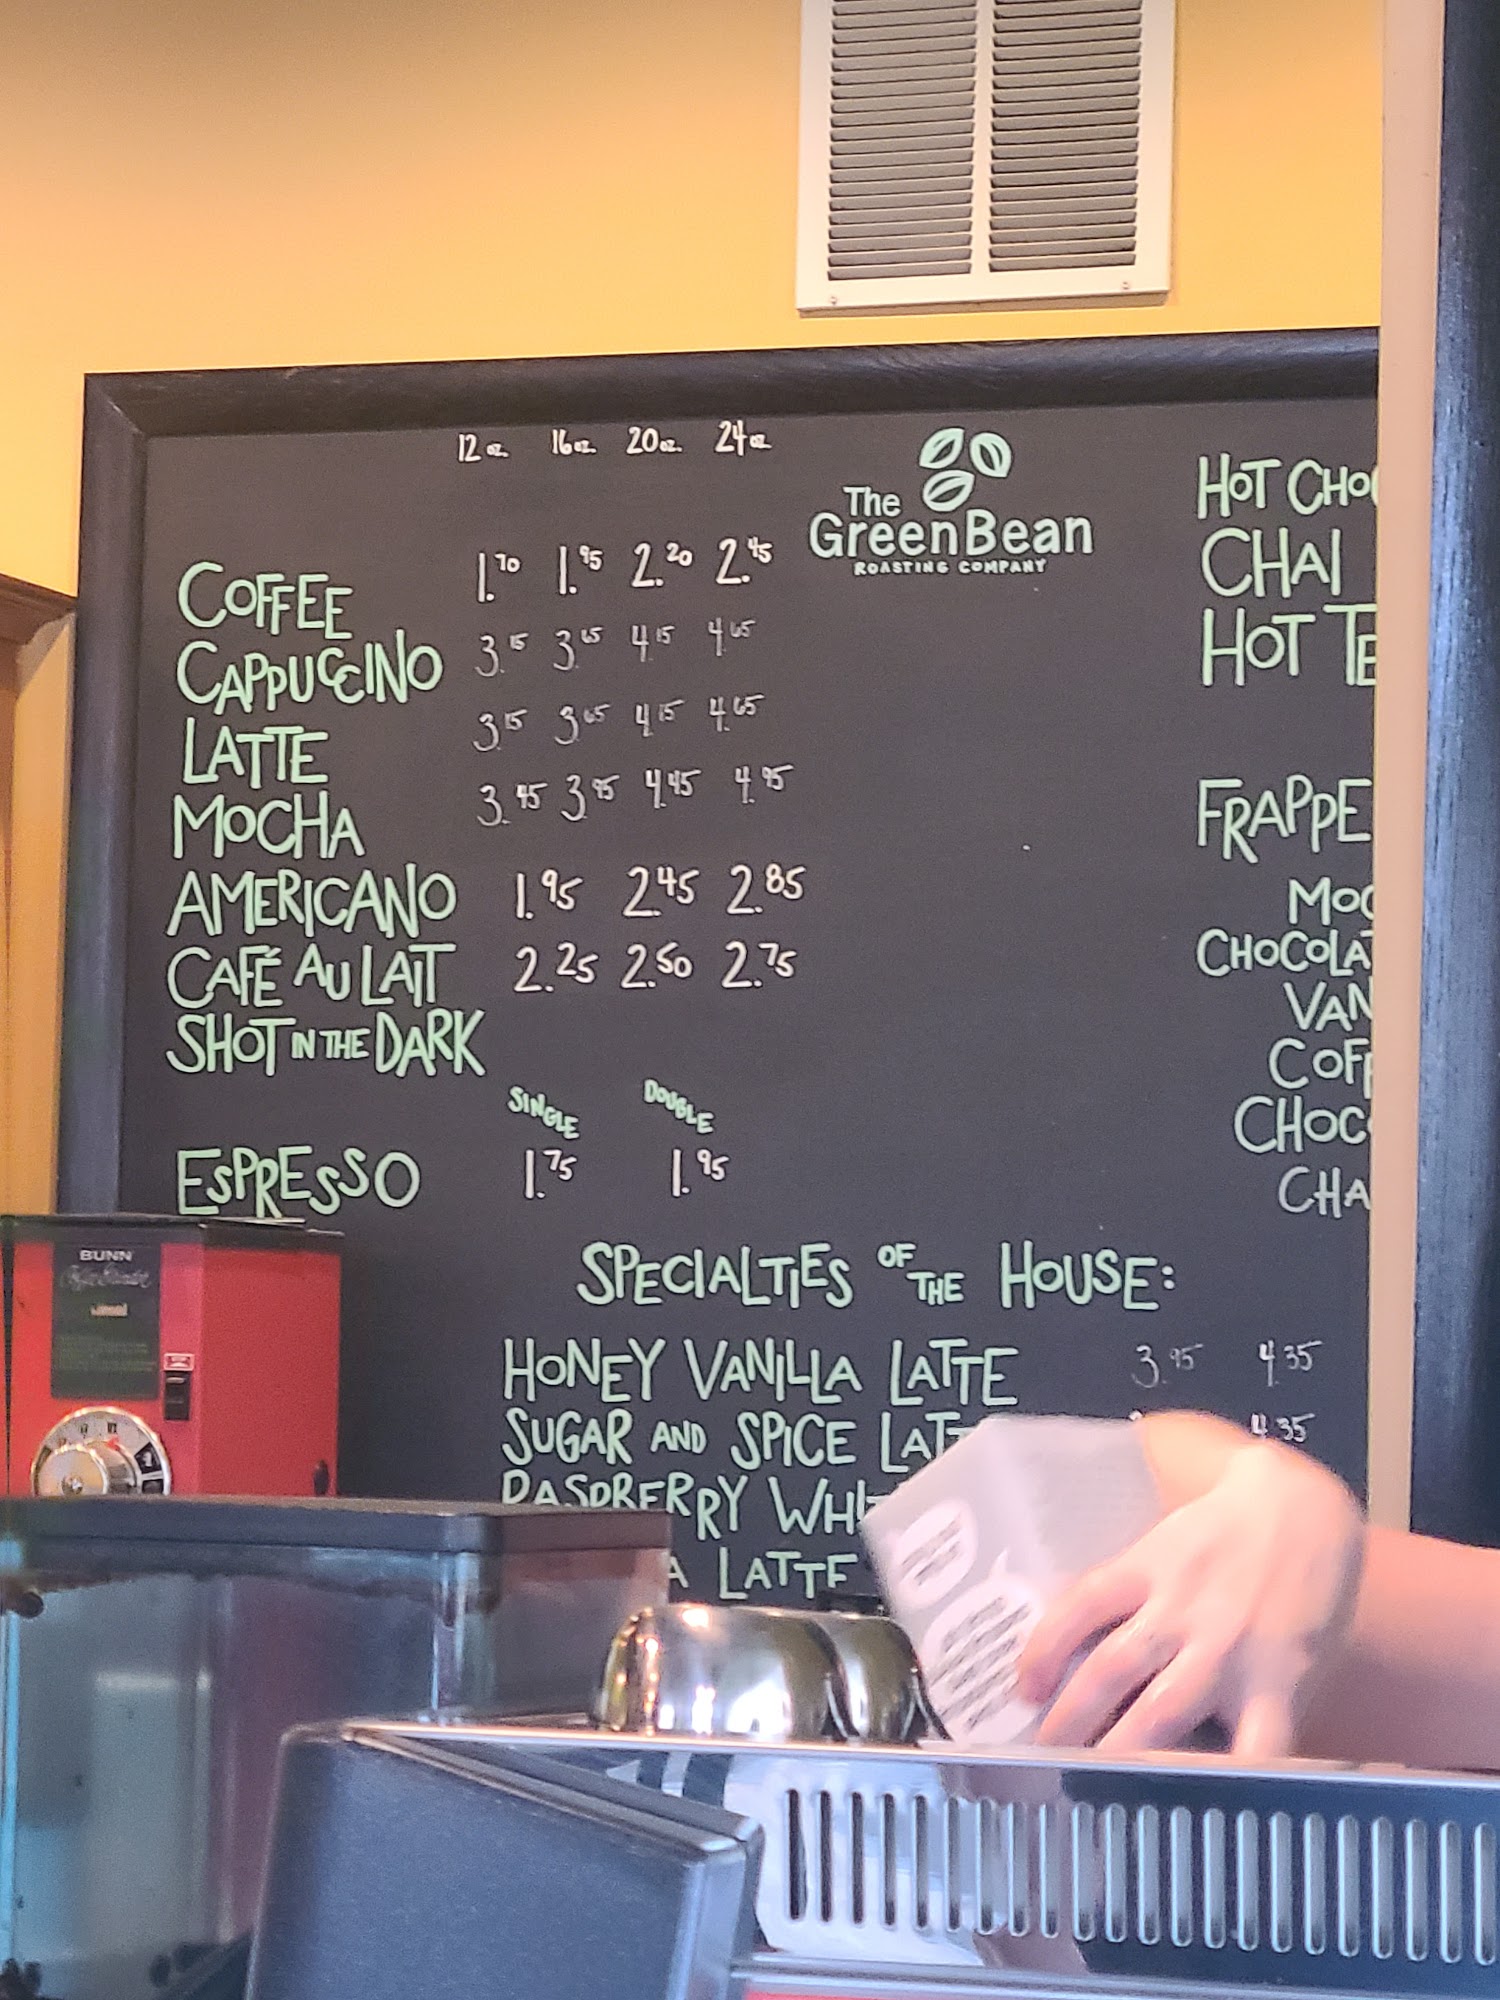 12 oz. 16 oz. 20 oz. 24 oz
The
GreenBean
ROASTING COMPANY
COFFEE 1.70 1.95 2.20 2.45
CAPPUCCINO 3.15 3.65 4.15 4.65
LATTE 3.15 3.65 4.15 4.65
MOCHA 3.45 3.95 4.45 4.95
AMERICANO 1.95 2.45 2.85
CAFÉ AU LAIT 2.25 2.50 2.75
SHOT IN THE DARK
SINGLE DOUBLE
ESPRESSO 1.75 1.95
HOT CHO
CHAI
HOT TE
FRAPPE
MOC
CHOCOLAT
VAN
COFF
CHOC
CHA
SPECIALTIES OF THE HOUSE:
HONEY VANILLA LATTE 3.95 4.35
SUGAR AND SPICE LATT 4.35
RASPBERRY WHI
A LATTE
BUNN